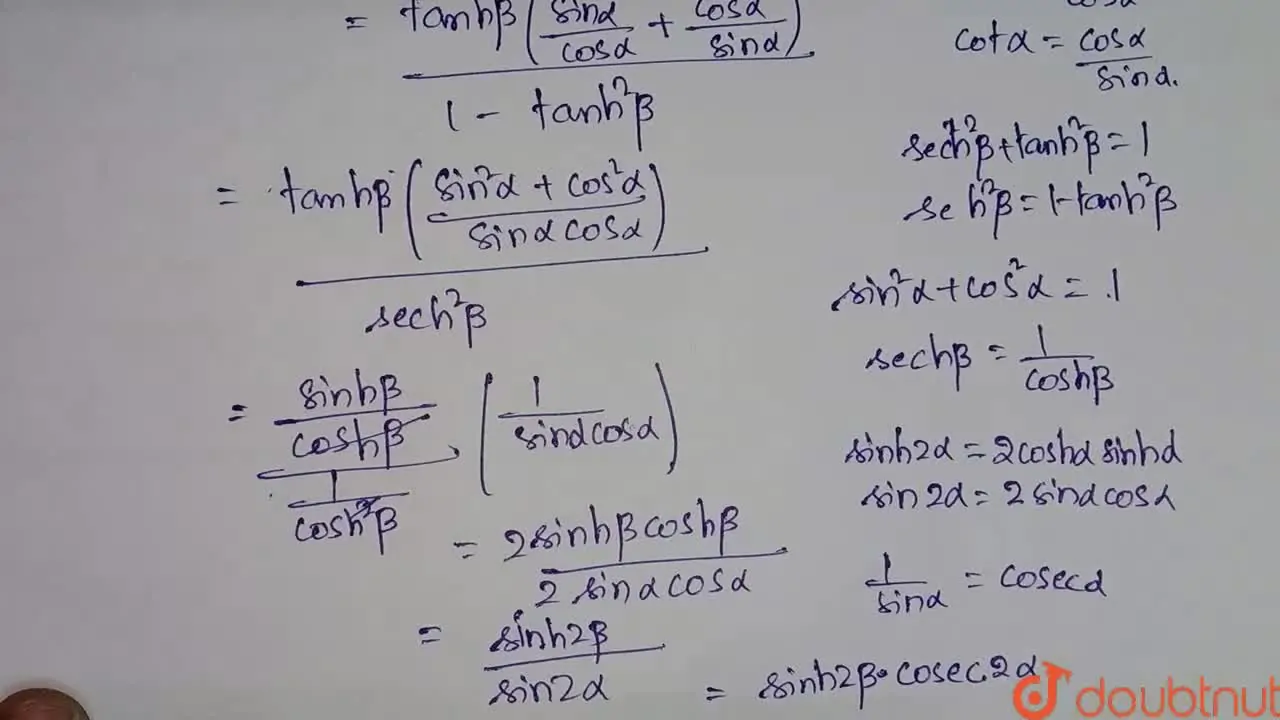 = tanhβ (sinα/cosα + cosα/sinα)
1 - tanh²β
= tanhβ (sin²α + cos²α / sinα cosα)
sech²β
= sinhβ / coshβ . (1 / sinα cosα)
1 / cosh²β
= 2 sinhβ coshβ / 2 sinα cosα
= sinh2β / sin2α = sinh2β · cosec2α
cosα
cotα = cosα / sinα.
sech²β + tanh²β = 1
se h²β = 1 - tanh²β
sin²α + cos²α = .1
sechβ = 1 / coshβ
sinh2α = 2coshα sinhα
sin2α = 2 sinα cosα
1 / sinα = cosecα
doubtnut